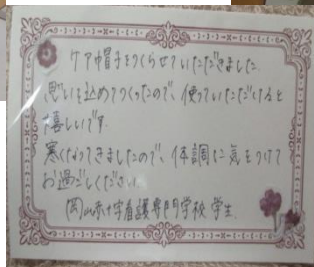 ケア帽子をつくらせていただきました。
思いを込めてつくったので、使っていただけると
嬉しいです。
寒くなってきましたので、体調に気をつけて
お過ごしください。
岡山赤十字看護専門学校 学生